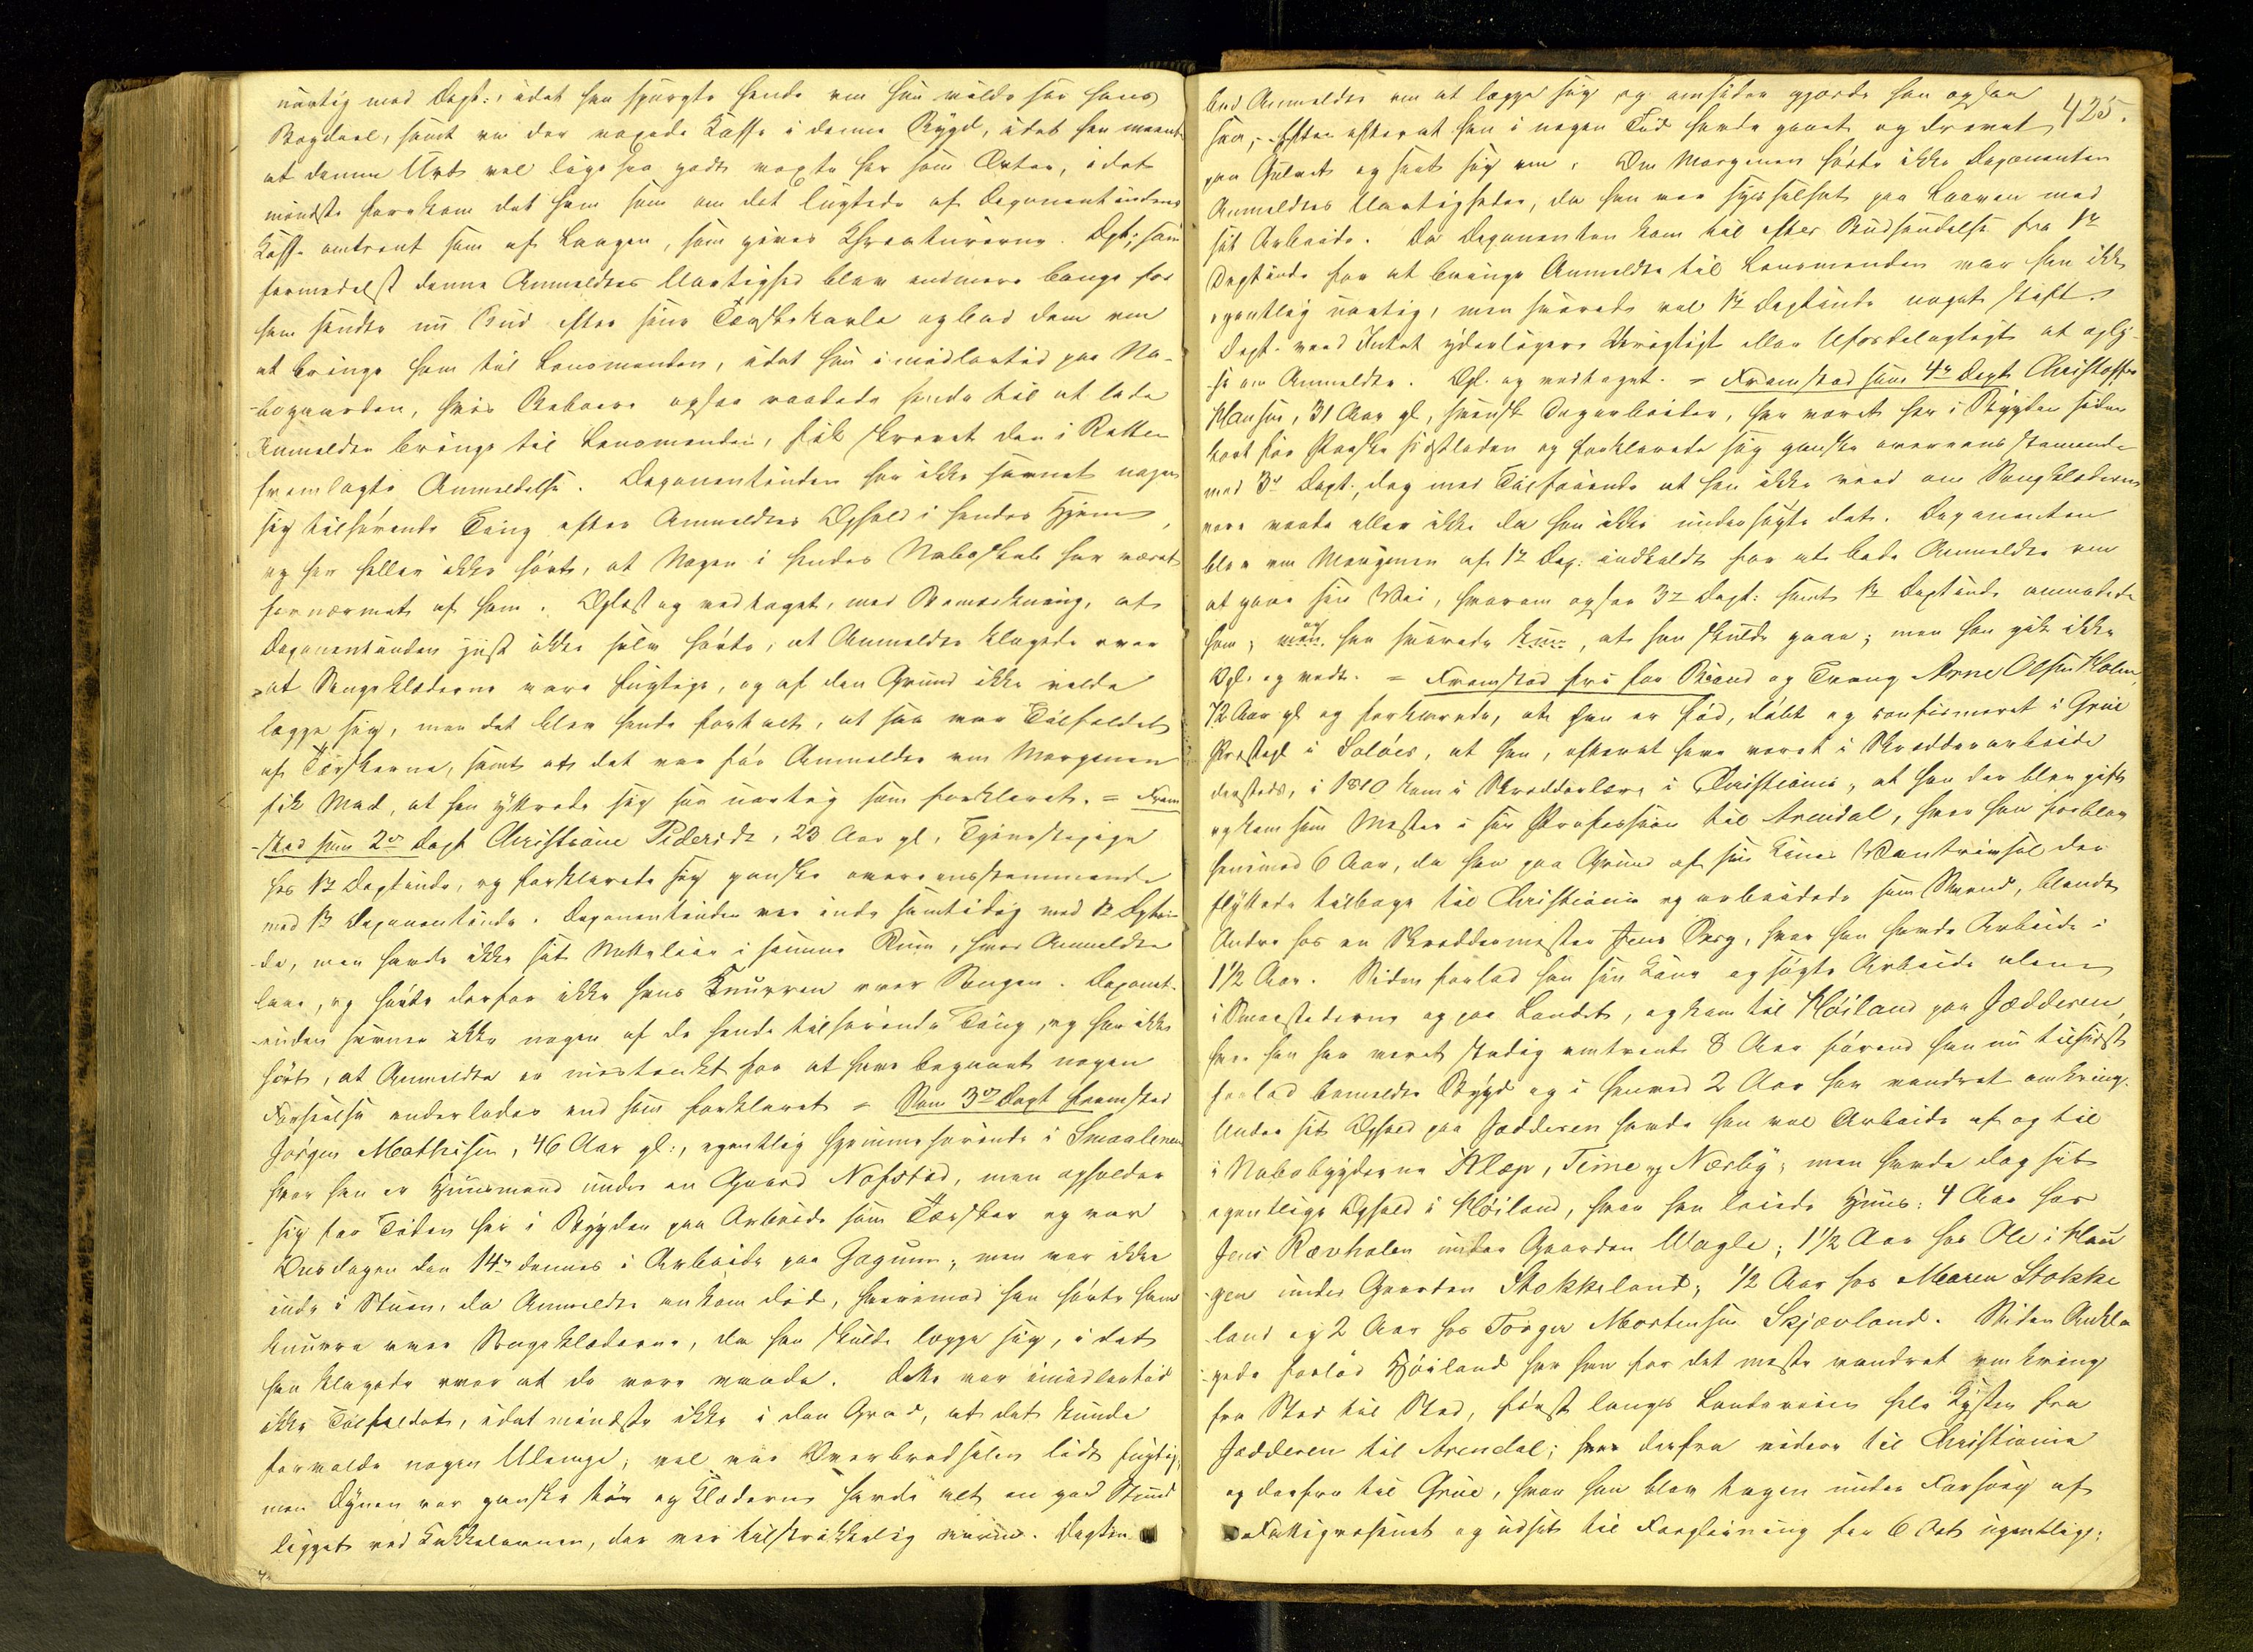 uartig mod Dept:, idet han spurgte hende om hun vilde see hans
Bagdeel, samt om der voxede Kaffe i denne Bygd, idet han meente
at denne Urt vel lige saa godt voxte her som Erter, idet
mindste forekom det ham som om det lugtede af Deponentindens
Kaffe omtrent som af Laagen, som gives Kreaturerne. Dpt:, som
formedelst denne Anmeldtes Uartighed blev endmere bange for
ham sendte nu Bud efter sine Tærskekarle og bad dem om
at bringe ham til Lensmanden, idet hun imidlertid paa Na-
bogaarden, hvis Beboere ogsaa raadede hende til at lade
Anmeldte bringe til Lensmanden, fik skrevet den i Retten
fremlagte Anmeldelse. Deponentinden har ikke savnet nogen
sig tilhørende Ting efter Anmeldtes Ophold i hendes Hjem,
og har heller ikke hørt, at Nogen i hendes Naboskab har været
fornærmet af ham. Oplæst og vedtaget, med Bemærkning, at
Deponentinden just ikke selv hørte, at Anmeldte klagede over
at Sengeklæderne vare fugtige, og af den Grund ikke vilde
lægge sig, men det blev hende fortalt, at saa var Tilfældet
af Tærskerne, samt at det var før Anmeldte om Morgenen
fik Mad, at han yttrede sig saa uartig som forklaret. = Frem
stod som 2det Dept Christiane Pideridt, 23 Aar gl, Tjenestepige
hos 1te Deptinde, og forklarede sig ganske overeensstemmende
med 1te Deponentinde. Deponentinden var inde samtidig med 1te Dptin-
de, men havde ikke sit Natteleie i samme Rum, hvor Anmeldte
laae, og hørte derfor ikke hans Knurren over Sengen. Deponent-
inden savner ikke nogen af de hende tilhørende Ting, og har ikke
hørt, at Anmeldte er mistænkt for at have begaaet nogen
Forseelse anderledes end som forklaret = Som 3die Dept fremstod
Jørgen Mathisen, 46 Aar gl:, egentlig hjemmehørende i Smaalenene
hvor han er Huusmand under en Gaard Nafstad, men opholder
sig for Tiden her i Bygden paa Arbeide som Tærsker og var
Onsdagen den 14de dennes i Arbeide paa Gagum, men var ikke
inde i Stuen, da Anmeldte ankom did, hvorimod han hørte ham
knurre over Sengeklæderne, da han skulde lægge sig, idet
han klagede over at de vare vaade. Dette var imidlertid
ikke Tilfældet, idet mindste ikke i den Grad, at det kunde
forvolde nogen Ulempe; vel var Overbredselen lidt fugtig,
men Dynen var ganske tør og Klæderne havde alt en god Stund
ligget ved Kakkelovnen, der var tilstrækkelig varm. Deptin
425.
bad Anmeldte om at lægge sig og omsider gjorde han ogsaa
saa, efter at han i nogen Tid havde gaaet og drevet
paa Gulvet og seet sig om. Om Morgenen hørte ikke Deponenten
Anmeldtes Uartigheder, da han var sysselsat paa Laaven med
sit Arbeide. Da Deponenten kom til efter Budsendelse fra 1te
Deptinde for at bringe Anmeldte til Lensmanden var han ikke
egentlig uartig, men svarede vel 1te Deptinde noget stift.
Dept. veed Intet yderligere Urigtigt eller Ufordelagtigt at oply-
se om Anmeldte. Opl. og vedtaget. = Fremstod som 4de Dept Christoffer
Hansen, 31 Aar gl, svensk Dagarbeider, har været her i Bygden siden
kort før Paaske sidstleden og forklarede sig ganske overeensstemmende
med 3die Dept., dog med Tilføiende at han ikke veed om Sengklæderne
vare vaade eller ikke da han ikke undersøgte det. Deponenten
blev om Morgenen af 1te Dep: indkaldt for at bede Anmeldte om
at gaae sin Vei, hvorom ogsaa 3die Dept: samt 1te Deptinde anmodede
ham; og han svarede , at han skulde gaae; men han gik ikke
Opl. og vedt. = Fremstod fri for Baand og Tvang Arne Olsen Holen,
72 Aar gl og forklarede, at han er fød, døbt og confirmeret i Grue
Præstegd i Soløer, at han, efterat have været i Skrædderarbeide
dersteds, i 1810 kom i Skrædderlære i Christiania, at han der blev gift
og kom som Mester i sin Profession til Arendal, hvor han forblev
henimod 6 Aar, da han paa Grund af sin Kones Vantrivsel der
flyttede tilbage til Christiania og arbeidede som Svend, blandt
Andre hos en Skræddermester Jens Berg, hvor han havde Arbeide i
1½ Aar. Siden forlod han sin Kone og søgte Arbeide alene
i Smaastæderne og paa Landet, og kom til Høiland paa Jædderen,
hvor han har været stadig omtrent 8 Aar førend han nu tilsidst
forlod bemeldte Bygd og i henved 2 Aar har vandret omkring.
Under sit Ophold paa Jædderen havde han vel Arbeide af og til
i Nabobygderne Klæp, Time og Nærbø; men havde dog sit
egentlige Ophold i Høiland, hvor han leiede Huus: 4 Aar hos
Jens Rævholen under Gaarden Wagle; 1½ Aar hos Ole i Hau
gen under Gaarden Stokkeland; ½ Aar hos Maren Stokke
land og 2 Aar hos Torger Mortensen Skjævland. Siden Ankla
gede forlod Høiland har han for det meste vandret omkring
fra Sted til Sted, først langs Landeveien hele Kysten fra
Jædderen til Arendal; derfra videre til Christiania
og derfra til Grue, hvor han blev tagen under Forsørg af
Fattigvæsenet og udsat til Forpleining for 6 Ort ugentlig;